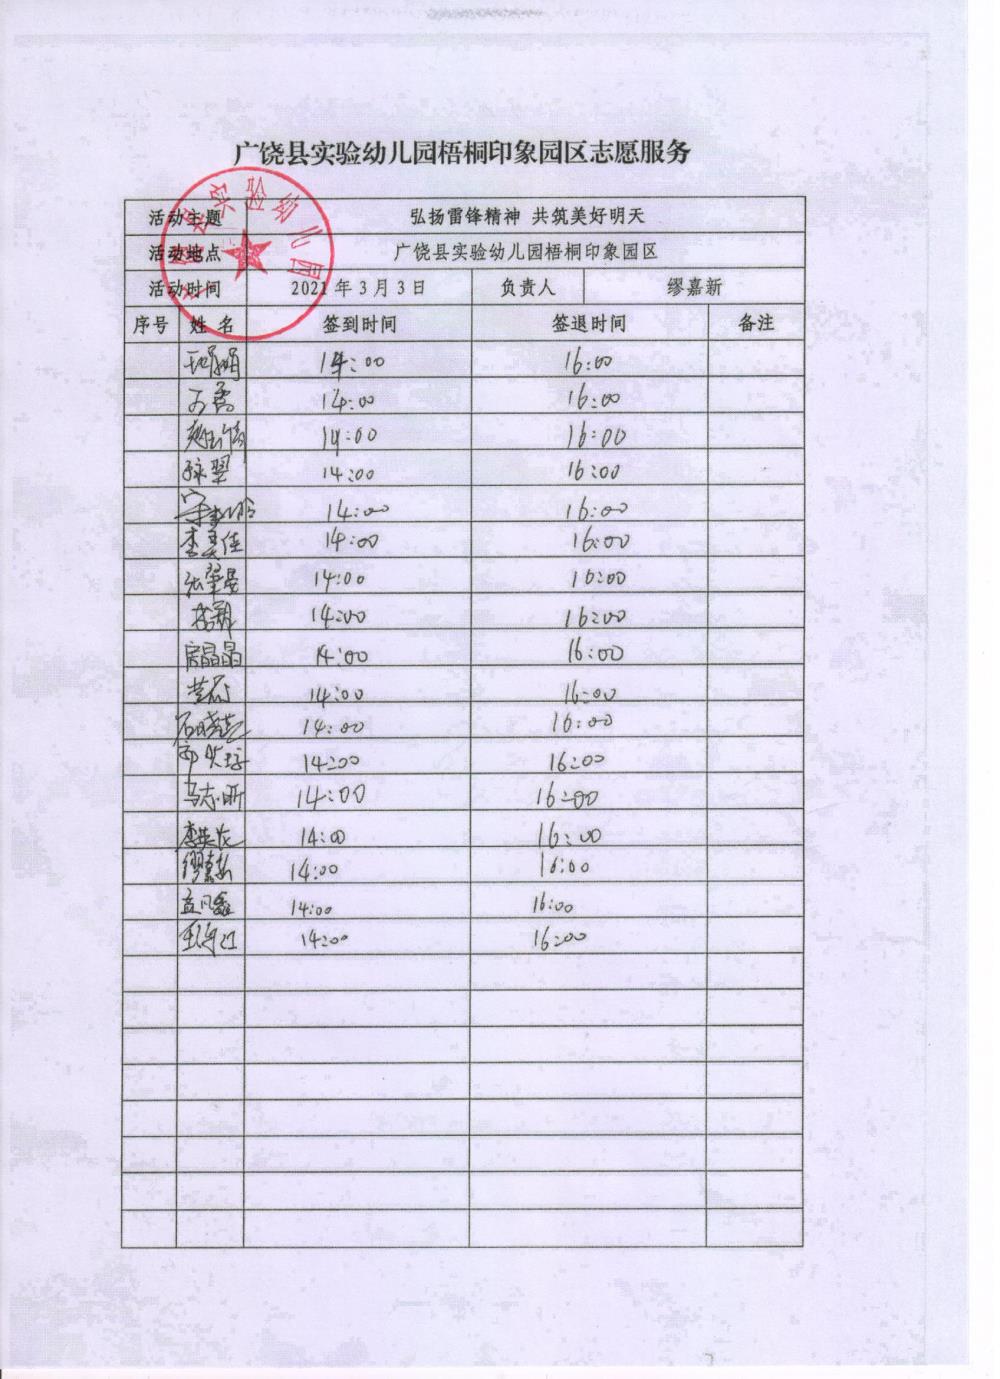 广饶县实验幼儿园梧桐印象园区志愿服务
活动主题 弘扬雷锋精神 共筑美好明天
活动地点 广饶县实验幼儿园梧桐印象园区
活动时间 2021 年 3 月 3 日 负责人 缪嘉新
序号 姓 名 签到时间 签退时间 备注
14:00 16:00
14:00 16:00
14:00 16:00
14:00 16:00
14:00 16:00
李昊佳 14:00 16:00
14:00 16:00
14:00 16:00
房晶晶 14:00 16:00
14:00 16:00
石晓燕 14:00 16:00
14:00 16:00
马志昕 14:00 16:00
14:00 16:00
缪嘉新 14:00 16:00
孟凡鑫 14:00 16:00
14:00 16:00
县实验幼儿园